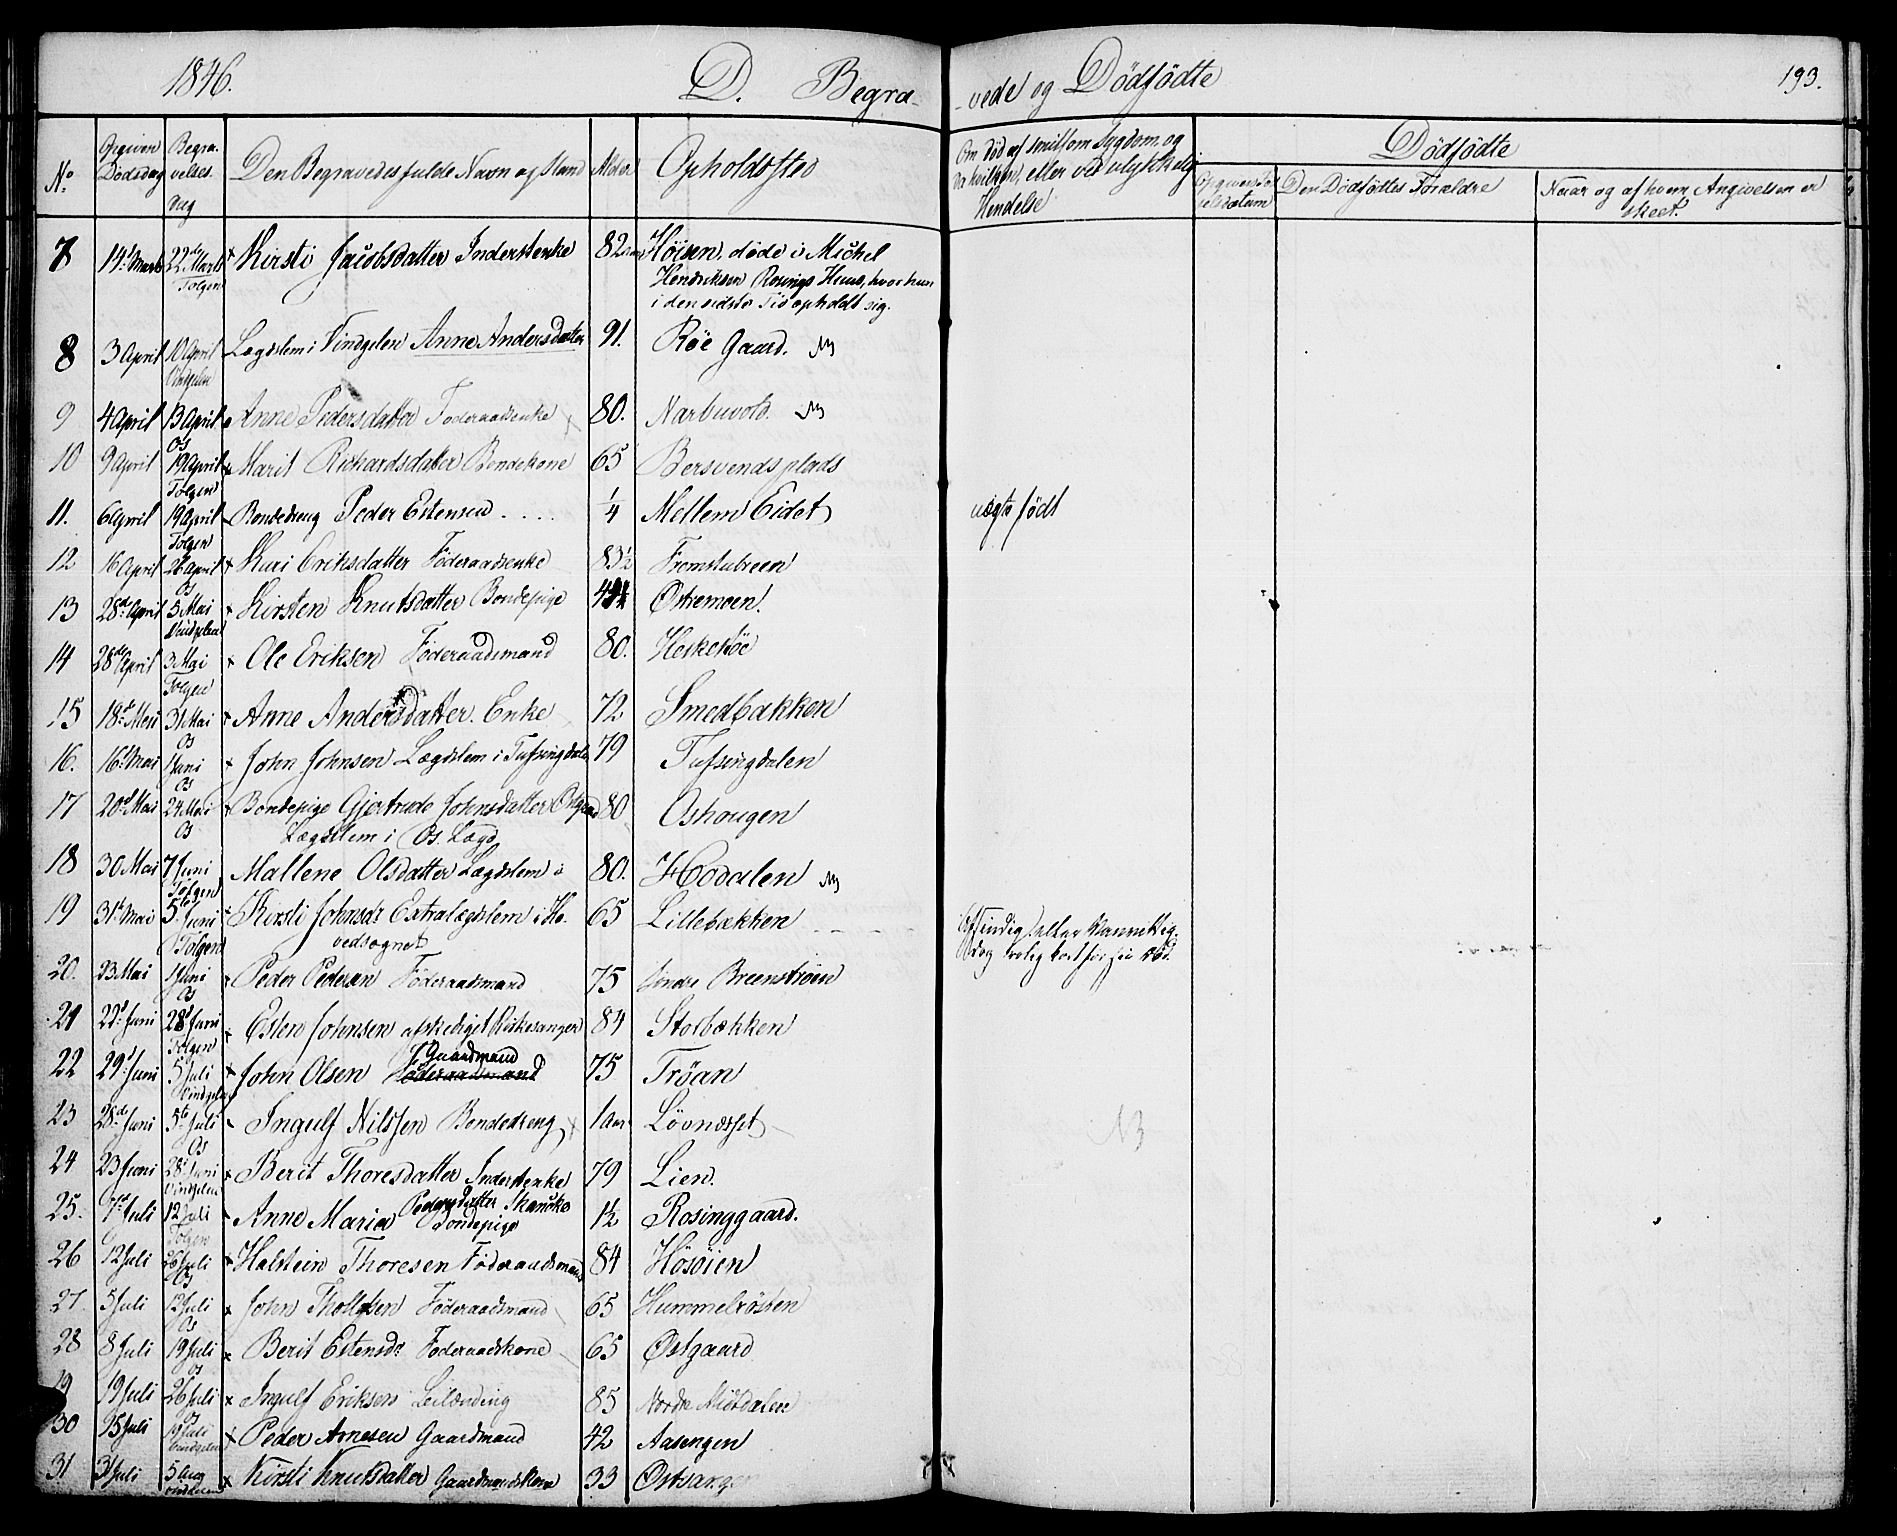 1846. D. Begra- -vede og Dødfødte 193.
No. Opgiven Dødsdag Begravelses Dag Den Begravedes fulde Navn og Stand Alder Opholdssted Om død af smitsom Sygdom og da hvilken, eller ved ulykkelig Hendelse Dødfødte
Den Dødfødtes Forældre Naar og af hvem Angivelsen er skeet.
7 14 Marts 22de Marts Tolgen Kirsti Jacobsdatter Inderstenke 82 Høisen, døde i Michel
Hendriksen Rosings Huus, hvor hun
i den sidste Tid opholdt sig.
8 3 April 10 April Vindgelen Lægdslem i Vindgelen Anne Andersdatter 91. Røe Gaard.
9 4 April 13 April Os Anne Pedersdatter Føderaadsenke 80. Narbuvold.
10 9 April 19 April Tolgen Marit Richardsdatter Bondekone 65 Bersvendsplads
11. 6 April 19 April Tolgen Bondedreng Peder Estensen 1/4 Mellem Eidet uægte født
12 16 April 26 April Os Kari Eriksdatter Føderaadsenke 83½ Fromstubreen
13 28d April 5 Mai Vindgelen Kirsten Knutsdatter Bondepige Østremoen.
14 28de April 3 Mai Tolgen Ole Eriksen Føderaadsmand 80.
15 18d Mai 31 Mai Os Anne Andersdatter. Enke 72 Smedbakken
16. 16d Mai 1 Juni Os John Johnsen Lægdslem i Tufsingdalen 79 Tufsingdalen
17 20d Mai 24 Mai Os Bondepige Gjertrude Johnsdatter Østgaard 80 Oshougen
Lægdslem i Os Lægd
18 30 Mai 7 Juni Tolgen Mallene Olsdatter Lægdslem i 80. Hodalen
19 31 Mai 5te Juni Tolgen Kirsti Johnsdr Extralægdslem i Ho- 65 Lillebækken Afsindig eller Vanvittig,
vedsognet dog rolig kort før sin Død.
20. 23 Mai 1 Juni Os Peder Pedersen Føderaadsmand 75 Søndre Breenstrøen
21 22d Juni 28d Juni Tolgen Esten Johnsen afskediget Kirkesanger 84 Storbækken
22 29d Juni 5 Juli Vindgelen John Olsen Gaardmand Føderaadsmand 75 Trøan
23 28de Juni 5te Juli Os Ingulf Nilssen Bondedreng 1 aar Løvnesset
24 23 Juni 28d Juni Vindgelen Berit Thoresdatter Inderstenke 79 Lien.
25. 7de Juli 12 Juli Tolgen Anne Maria Pedersdatter Skancke Bondepige 1½ Rosinggaard.
26 12 Juli 26 Juli Os Halstein Thoresen Føderaadsmand 84 Høsøien
27 5 Juli 12 Juli Os John Thollefsen Føderaadsmand 65 Hummelrøsten
28 8 Juli 19 Juli Os Berit Estensdr Føderaadskone 65 Østgaard
19 Juli 26 Juli Os Ingulf Eriksen Leilænding 85 Nordre Midtdalen
30 15 Juli 19 Juli Vindgelen Peder Arnesen Gaardmand 42 Aasengen
31 31 Juli 5 Aug Kirsti Knutsdatter Gaardmandskone 33